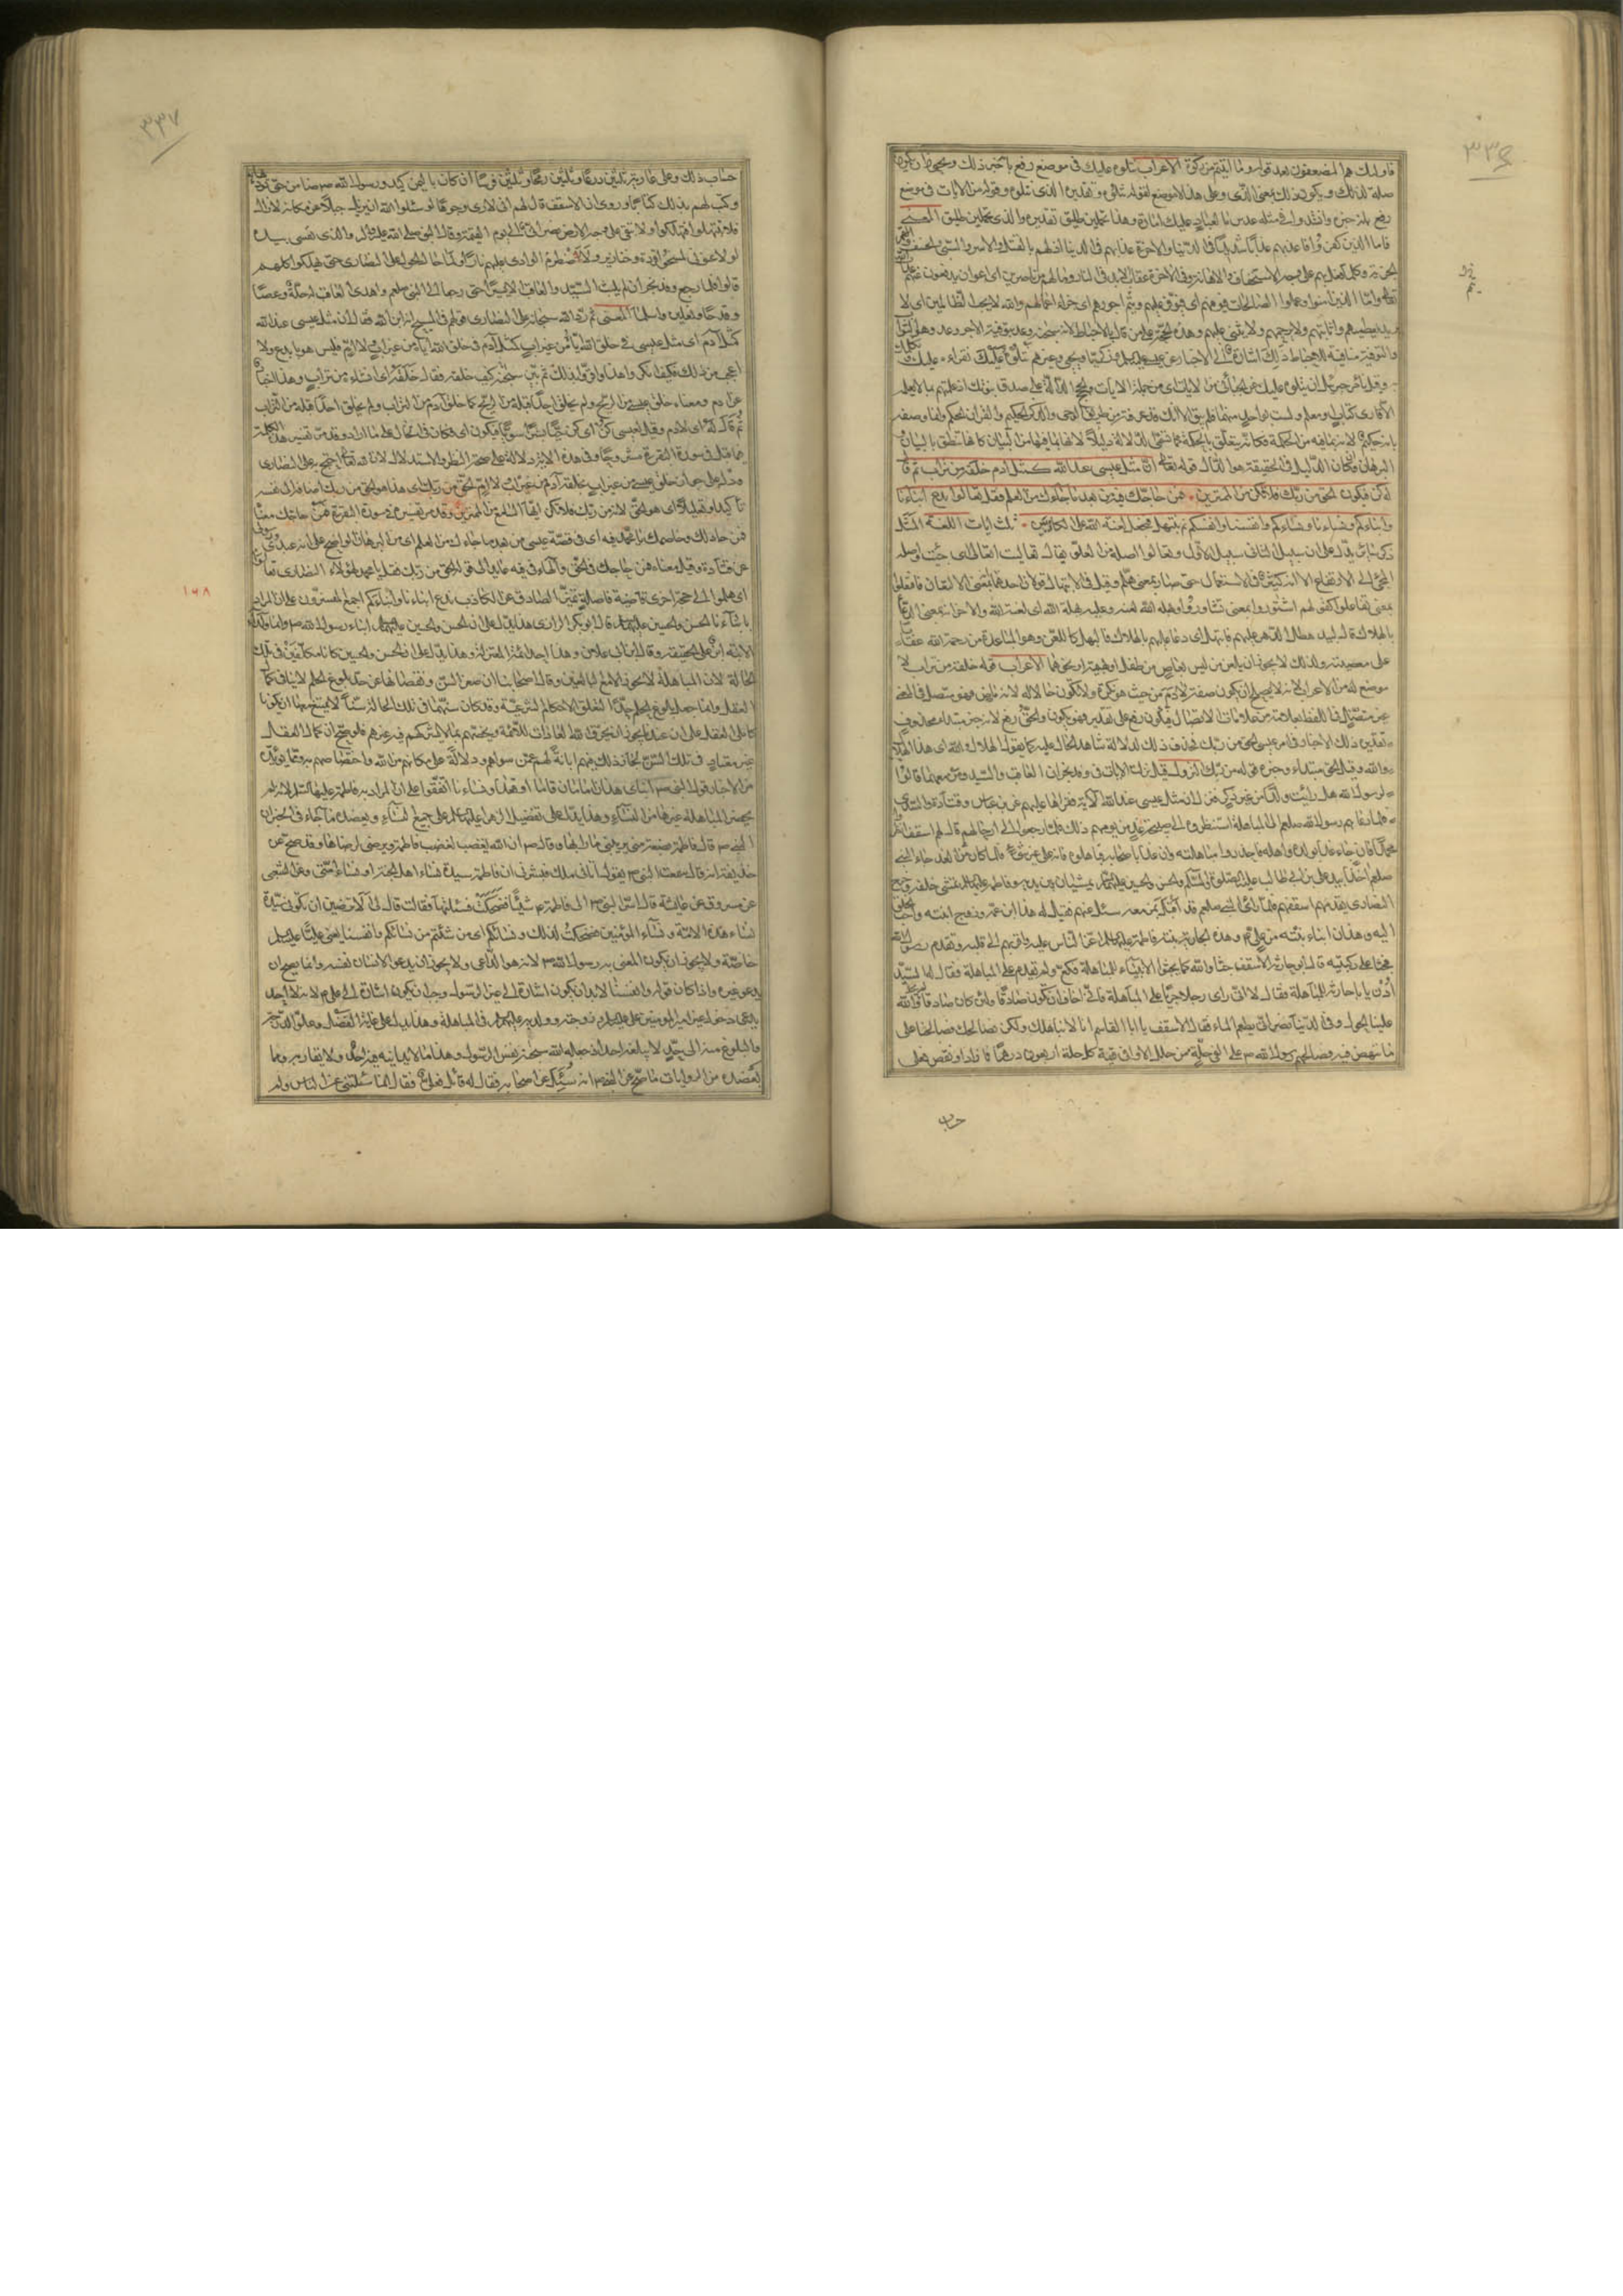 ٣٣٦
فاولئك هم المضعفون بعد قوله وما اتيتم من زكوة الاعراب نتلوه عليك في موضع رفع بانه خبر ذلك ويجوز ان يكون
صلة لذلك ويكون ذلك بمعنى الذي وعلى هذا لا موضع لقوله نتلوه وتقديره الذي نتلوه وقوله من الايات في موضع
رفع بانه خبره وانشد
المعنى
فاما الذين كفروا فاعذبهم عذابا شديدا في الدنيا والاخرة عذابهم في الدنيا اذلالهم بالقتل والاسر والسبي والخسف
والجزية وكل ما فعل بهم على وجه الاستخفاف والاهانة وفي الاخرة عقاب الابد في النار وما لهم من ناصرين اي اعوان يدفعون عنهم
واما الذين امنوا وعملوا الصالحات فيوفيهم اي يوفر عليهم ويتمم اجورهم اي جزاء اعمالهم والله لا يحب الظالمين اي لا
يريد تعظيمهم واثابتهم ولا يرحمهم ولا يثني عليهم وهذه حجة على من قال بالاحباط لانه سبحانه وعد بتوفية الاجر وهو الثواب
والتوفية منافية للاحباط ذلك اشارة الى الاخبار عن عيسى وزكريا ويحيى وغيرهم نتلوه عليك نقرأه عليك
وقيل نأمر جبرئيل ان يتلوه عليك عن الجبائي من الايات اي من جملة الايات والحجج الدالة على صدق نبوتك اذ علمتهم بما لا يعلمه
الا قارئ كتاب او معلم ولست بواحد منهما فلم يبق الا انك قد عرفته من طريق الوحي والذكر الحكيم والقران المحكم وانما وصفه
بانه حكيم لانه بما فيه من الحكمة فكانه ينطق بالحكمة كما تسمى الدلالة دليلا لانها بما فيها من البيان كانها تنطق بالبيان
والبرهان وان كان الدليل في الحقيقة هو الدال قوله تعالى ان مثل عيسى عند الله كمثل ادم خلقه من تراب ثم قال
له كن فيكون الحق من ربك فلا تكن من الممترين فمن حاجك فيه من بعد ما جاءك من العلم فقل تعالوا ندع ابناءنا
وابناءكم ونساءنا ونساءكم وانفسنا وانفسكم ثم نبتهل فنجعل لعنة الله على الكاذبين ثلث ايات اللغة المثل
ذكر سائر يدل على ان سبيل الثاني سبيل الاول وتعالوا اصله من العلو يقال تعاليت اتعالى اي جئت واصله
المجيء الى الارتفاع الا انه كثر في الاستعمال حتى صار بمعنى هلم وقيل في الابتهال قولان احدهما انه بمعنى الالتعان فافتعلوا
بمعنى تفاعلوا كقولهم اشتوروا بمعنى تشاوروا وبهله الله لعنه وعليه بهلة الله اي لعنة الله والاخر انه بمعنى الدعاء
بالهلاك قال لبيد نظر الدهر عليهم فابتهل اي دعا عليهم بالهلاك فالبهل كاللعن وهو المباعدة من رحمة الله عقابا
على معصيته ولذلك لا يجوز ان يلعن من ليس بعاص من طفل او بهيمة او نحوهما الاعراب قوله خلقه من تراب لا
موضع له من الاعراب لانه لا يصلح ان يكون صفة لادم من حيث هو نكرة ولا تكون حالا له لانه ماض فهو متصل في المعنى
غير متصل في اللفظ بعلامة من علامات الاتصال فيكون رفع على تقدير فهو يكون والحق رفع لانه خبر مبتدا محذوف
وتقديره ذلك الاخبار في امر عيسى الحق من ربك فحذف ذلك لدلالة شاهد الحال عليه كما يقول الهلال والله اي هذا الهلال
والله وقيل الحق مبتداء وخبره قوله من ربك النزول قيل نزلت الايات في وفد نجران العاقب والسيد ومن معهما قالوا
لرسول الله هل رايت ولدا من غير ذكر فنزل ان مثل عيسى عند الله الاية فقراها عليهم عن ابن عباس وقتادة والحسن
فلما دعاهم رسول الله صلعم الى المباهلة استنظروه الى صبيحة غد من يومهم ذلك فلما رجعوا الى رحالهم قال لهم اسقف انظروا
محمدا فان جاء غدا بولده واهله فاحذروا مباهلته وان غدا باصحابه فباهلوه فانه على غير شيء فلما كان من الغد جاء النبي
صلعم اخذا بيد علي بن ابي طالب والحسن والحسين يمشيان بين يديه وفاطمة تمشي خلفه وخرج
النصارى يقدمهم اسقفهم فلما راى النبي صلعم قد اقبل بمن معه سئل عنهم فقيل له هذا ابن عمه وزوج ابنته واحب الخلق
اليه وهذان ابناء بنته من علي وهذه الجارية بنته فاطمة اعز الناس عليه واقربهم الى قلبه وتقدم رسول الله
فجثا على ركبتيه قال ابو حارثة الاسقف جثا والله كما يجثو الانبياء للمباهلة فكع ولم يقدم على المباهلة فقال له السيد
ادن يا با حارثة للمباهلة فقال لا اني لارى رجلا جريا على المباهلة فاني اخاف ان يكون صادقا ولئن كان صادقا لم يحل والله
علينا الحول وفي الدنيا نصراني يطعم الماء فقال الاسقف يا ابا القاسم انا لا نباهلك ولكن نصالحك فصالحنا على
ما ننهض فيه فصالحهم رسول الله على الفي حلة من حلل الاواقي قيمة كل حلة اربعون درهما فما زاد او نقص فعلى
حساب
٣٣٧
حساب ذلك وعلى عارية ثلثين درعا وثلثين رمحا وثلثين فرسا ان كان باليمن كيد ورسول الله ضامن حتى يؤديها
وكتب لهم بذلك كتابا وروي ان الاسقف قال لهم اني لارى وجوها لو سئلوا الله ان يزيل جبلا من مكانه لازاله
فلا تبتهلوا فتهلكوا ولا يبقى على وجه الارض نصراني الى يوم القيمة وقال النبي صلى الله عليه واله والذي نفسي بيده
لو لاعنوني لمسخوا قردة وخنازير ولاضطرم الوادي عليهم نارا ولما حال الحول على النصارى حتى هلكوا كلهم
قالوا فلما رجع وفد نجران لم يلبث السيد والعاقب الا يسيرا حتى رجعا الى النبي صلعم واهدى العاقب له حلة وعصا
وقدحا ونعلين واسلما المعنى ثم رد الله سبحانه على النصارى قولهم في المسيح انه ابن الله فقال ان مثل عيسى عند الله
كمثل ادم اي مثل عيسى في خلق الله اياه من غير اب كمثل ادم في خلق الله اياه من غير اب ولا ام فليس هو بابدع ولا
اعجب من ذلك فكيف انكروا هذا واقروا بذلك ثم بين سبحانه كيف خلقه فقال خلقه اي انشاه من تراب وهذا
عن ادم ومعناه خلق عيسى من الريح ولم يخلق احدا قبله من الريح كما خلق ادم من التراب ولم يخلق احدا قبله من التراب
ثم قال له اي لادم وقيل لعيسى كن اي كن حيا بشرا سويا فيكون اي فكان في الحال على ما اراد وقد مر تفسير هذه الكلمة
فيما قبل في سورة البقرة مشروحا وفي هذه الاية دلالة على صحة النظر والاستدلال لان الله تعالى احتج به على النصارى
ودل على جواز خلق عيسى من غير اب بخلقه ادم من غير اب ولا ام الحق من ربك اي هذا هو الحق من ربك اضافه الى نفسه
تاكيدا وتعليلا اي هو الحق لانه من ربك فلا تكن ايها السامع من الممترين وقد مر تفسيره في سورة البقرة فمن حاجك معناه
فمن جادلك وخاصمك يا محمد فيه اي في قصة عيسى من بعد ما جاءك من العلم اي من البرهان الواضح على انه عبدي ورسولي
عن قتادة وقيل معناه فمن حاجك في الحق والهاء في فيه عايد الى قوله الحق من ربك فقل يا محمد لهؤلاء النصارى تعالوا
اي هلموا الى حجة اخرى ماضية فاصلة تميز الصادق من الكاذب ندع ابناءنا وابناءكم اجمع المفسرون على ان المراد
١٦٨
بابنائنا الحسن والحسين قال ابو بكر الرازي هذا يدل على ان الحسن والحسين ابناء رسول الله وان ولد
الابنة ابن على الحقيقة وقال ابن ابي علان وهذا احد ائمة المعتزلة وهذا يدل على ان الحسن والحسين كانا مكلفين في تلك
الحالة لان المباهلة لا يجوز الا مع البالغين وقال اصحابنا ان صغر السن ونقصانها عن حد بلوغ الحلم لا ينافي كمال
العقل وانما جعل بلوغ الحلم حدا لتعلق الاحكام الشرعية وقد كان سنهما في تلك الحالة سنا لا يمتنع معها ان يكونا
كاملي العقل على ان عندنا يجوز ان يخرق الله العادات للائمة ويخصهم بما لا يشركهم فيه غيرهم فلو صح ان كمال العقل
غير معتاد في تلك السن لجاز ذلك فيهم ابانة لهم عمن سواهم ودلالة على مكانهم من الله واختصاصهم به ومما يؤيده
من الاخبار قول النبي ابناي هذان امامان قاما او قعدا ونساءنا اتفقوا على ان المراد به فاطمة لانه لم
يحضر المباهلة غيرها من النساء وهذا يدل على تفضيل الزهراء على جميع النساء ويعضده ما جاء في الخبر ان
النبي قال فاطمة بضعة مني يريبني ما رابها وقال ان الله يغضب لغضب فاطمة ويرضى لرضاها وقد صح عن
حذيفة انه قال سمعت النبي يقول اتاني ملك فبشرني ان فاطمة سيدة نساء اهل الجنة او نساء امتي وعن الشعبي
عن مسروق عن عايشة قالت اسر النبي الى فاطمة شيئا فضحكت فسئلتها فقالت قال لي الا ترضين ان تكوني سيدة
نساء هذه الامة ونساء المؤمنين فضحكت لذلك ونساءكم اي من شئتم من نسائكم وانفسنا يعني عليا
خاصة ولا يجوز ان يكون المعني به رسول الله لانه هو الداعي ولا يجوز ان يدعو الانسان نفسه وانما يصح ان
يدعو غيره واذا كان قوله وانفسنا لا بد ان يكون اشارة الى غير الرسول وجب ان يكون اشارة الى علي لانه لا احد
يدعي دخول غير امير المؤمنين وزوجته وولديه في المباهلة وهذا يدل على غاية الفضل وعلو الدرجة
والبلوغ منه الى حيث لا يبلغه احد اذ جعله الله سبحانه نفس الرسول وهذا ما لا يدانيه فيه احد ولا يقاربه ومما
يعضده من الروايات ما صح عن النبي انه سئل عن اصحابه فقال له قائل فعلي فقال انما سئلتني عن الناس ولم